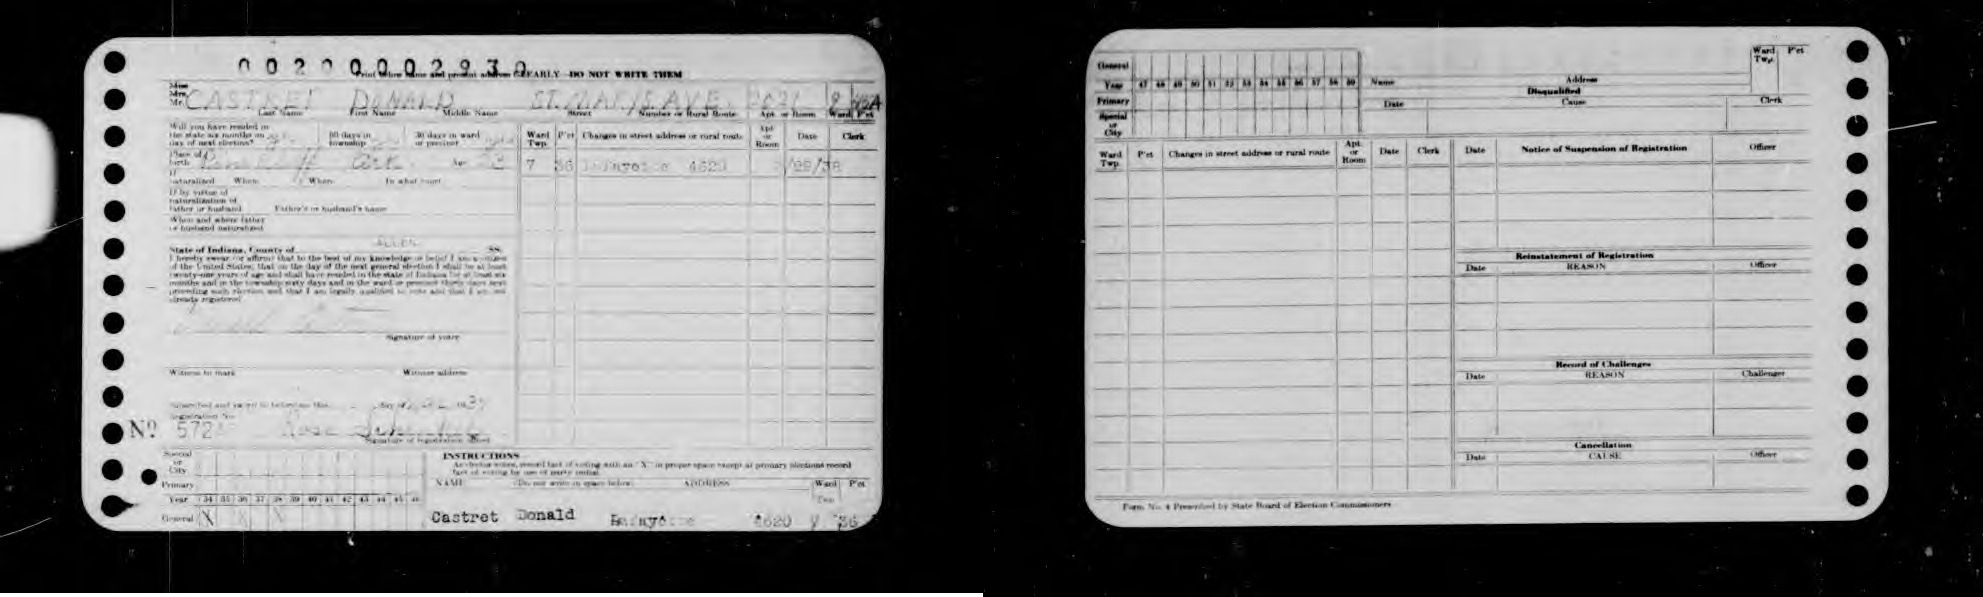 00200002930
Print your name and present address CLEARLY—DO NOT WRITE THEM
Miss
Mrs.
Mr. CASTRET DONALD ST. MARYS AVE. 2 8
Last Name First Name Middle Name Street Number or Rural Route Apt. or Room Ward P'ct
Will you have resided in
the state six months on 60 days in 30 days in ward
day of next election? township or precinct
Place of
birth Ark Age
If
naturalized When Where In what court
If by virtue of
naturalization of
father or husband Father's or husband's name
When and where father
or husband naturalized
State of Indiana, County of ALLEN SS:
I hereby swear (or affirm) that to the best of my knowledge or belief I am a citizen
of the United States, that on the day of the next general election I shall be at least
twenty-one years of age and shall have resided in the state of Indiana for at least six
months and in the township sixty days and in the ward or precinct thirty days next
preceding such election and that I am legally qualified to vote and that I am not
already registered
Signature of voter
Witness to mark Witness address
Subscribed and sworn to before me this day of
Registration No.
Nº 572 Rose
Signature of registration officer
Ward Twp. P'ct Changes in street address or rural route Apt. or Room Date Clerk
7 36 Lafayette 4620 /22/38
Special
or
City
Primary
Year 34 35 36 37 38 39 40 41 42 43 44 45 46
General X X X
INSTRUCTIONS
As elector votes, record fact of voting with an "X" in proper space except at primary elections record
fact of voting by use of party initial.
NAME (Do not write in space below) ADDRESS Ward Twp. P'ct
Castret Donald Lafayette 4620 7 36
General
Year 47 48 49 50 51 52 53 54 55 56 57 58 59
Primary
Special
or
City
Name Address Ward Twp. P'ct
Disqualified
Date Cause Clerk
Ward Twp. P'ct Changes in street address or rural route Apt. or Room Date Clerk
Date Notice of Suspension of Registration Officer
Reinstatement of Registration
Date REASON Officer
Record of Challenges
Date REASON Challenger
Cancellation
Date CAUSE Officer
Form No. 4 Prescribed by State Board of Election Commissioners